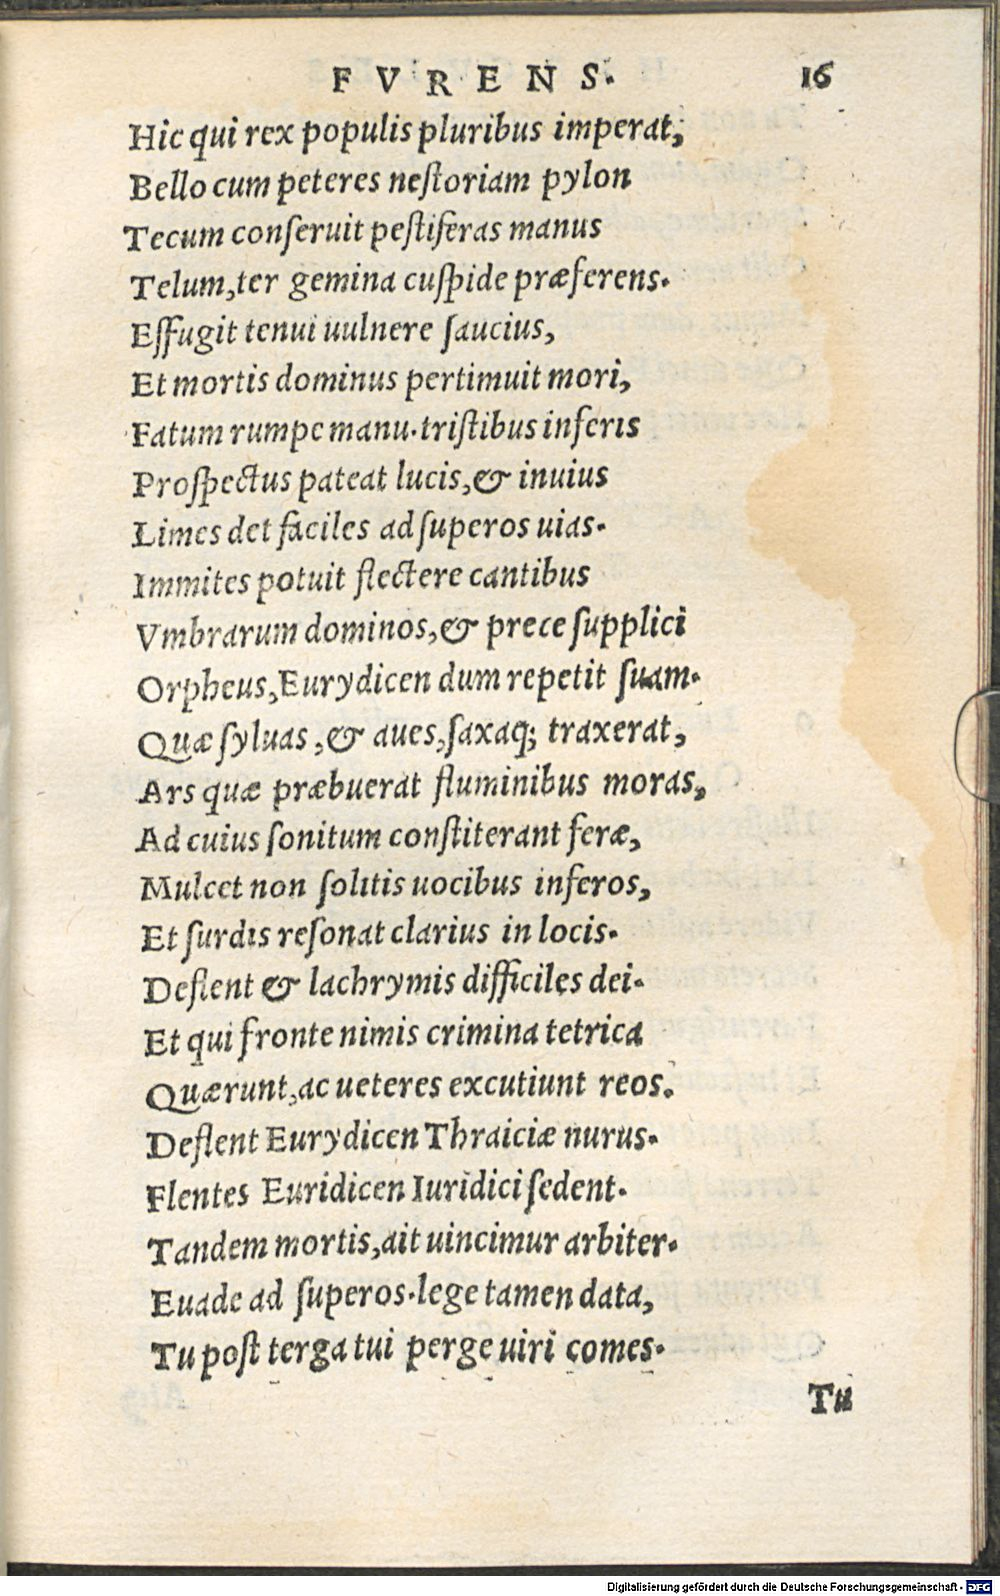 FVRENS. 16
Hic qui rex populis pluribus imperat,
Bello cum peteres neſtoriam pylon
Tecum conſeruit peſtiferas manus
Telum, ter gemina cuſpide præferens.
Effugit tenui uulnere ſaucius,
Et mortis dominus pertimuit mori,
Fatum rumpe manu. triſtibus inferis
Proſpectus pateat lucis, & inuius
Limes det faciles ad ſuperos uias.
Immites potuit flectere cantibus
Vmbrarum dominos, & prece ſupplici
Orpheus, Eurydicen dum repetit ſuam.
Quæ ſyluas, & aues, ſaxaq; traxerat,
Ars quæ præbuerat fluminibus moras,
Ad cuius ſonitum conſtiterant feræ,
Mulcet non ſolitis uocibus inferos,
Et ſurdis reſonat clarius in locis.
Deflent & lachrymis difficiles dei.
Et qui fronte nimis crimina tetrica
Quærunt, ac ueteres excutiunt reos.
Deflent Eurydicen Thraiciæ nurus.
Flentes Euridicen Iuridici ſedent.
Tandem mortis, ait uincimur arbiter.
Euade ad ſuperos. lege tamen data,
Tu poſt terga tui perge uiri comes.
Tu
Digitalisierung gefördert durch die Deutsche Forschungsgemeinschaft - DFG